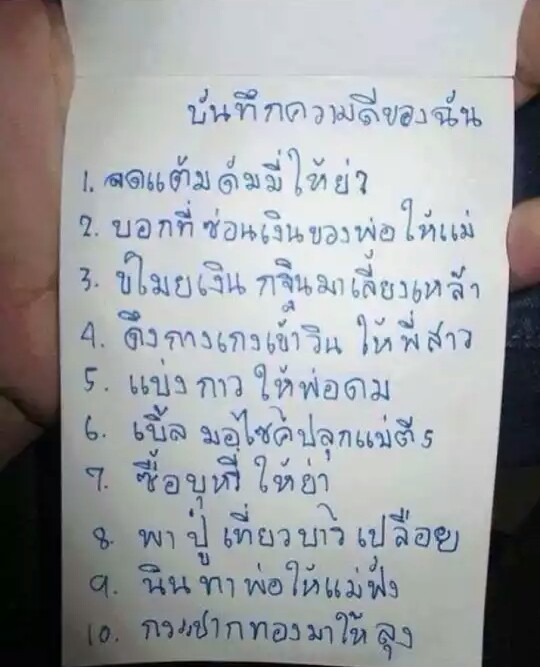 บันทึกความดีของฉัน
1. จดแต้มดัมมี่ให้ย่า
2. บอกที่ซ่อนเงินของพ่อให้แม่
3. ขโมยเงิน กฐินมาเลี้ยงเหล้า
4. ดึงกางเกงเข้าวิน ให้พี่สาว
5. แบ่งกาวให้พ่อดม
6. เบิ้ล มอไซค์ปลุกแม่ตี 5
7. ซื้อบุหรี่ ให้ย่า
8. พาปู่ เที่ยวบาร์ เปลือย
9. นินทาพ่อให้แม่ฟัง
10. กระชากทองมาให้ลุง